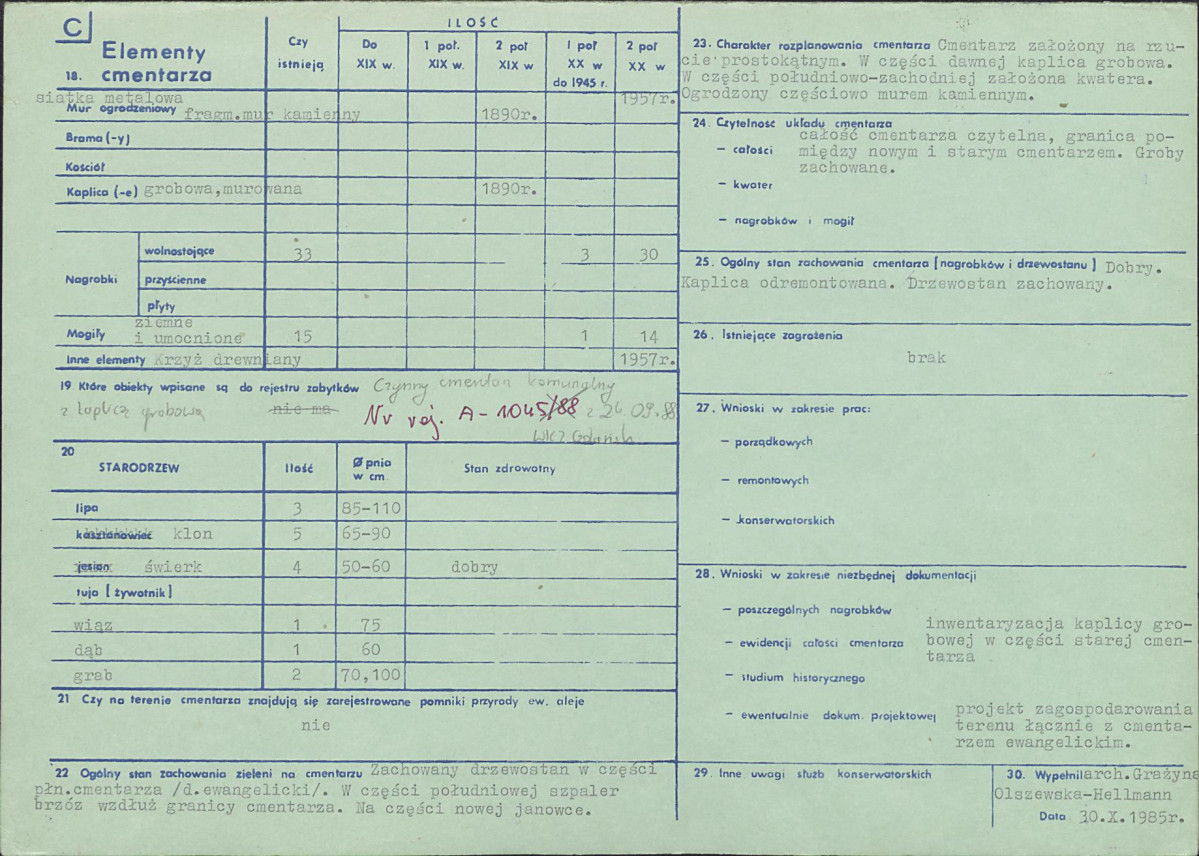 C
18. Elementy cmentarza
Czy istnieją
ILOŚĆ
Do XIX w.
1 poł. XIX w.
2 poł XIX w
I poł XX w do 1945 r.
2 poł XX w
siatka metalowa 1957r.
Mur ogrodzeniowy fragm.mur kamienny 1890r.
Brama (-y)
Kościół
Kaplica (-e) grobowa,murowana 1890r.
Nagrobki
wolnostojące 33 3 30
przyścienne
płyty
ziemne
Mogiły i umocnione 15 1 14
Inne elementy Krzyż drewniany 1957r.
19 Które obiekty wpisane są do rejestru zabytków Czynny cmentarz komunalny
z kaplicą grobową nie ma Nr rej. A-1045/88 z 26.09.88
WKZ Gdańsk
20 STARODRZEW
Ilość
Ø pnia w cm
Stan zdrowotny
lipa 3 85-110
kasztanowiec klon 5 65-90
jesion świerk 4 50-60 dobry
tuja [żywotnik]
wiąz 1 75
dąb 1 60
grab 2 70,100
21 Czy na terenie cmentarza znajdują się zarejestrowane pomniki przyrody ew. aleje
nie
22 Ogólny stan zachowania zieleni na cmentarzu Zachowany drzewostan w części
płn.cmentarza /d.ewangelicki/. W części południowej szpaler
brzóz wzdłuż granicy cmentarza. Na części nowej janowce.
23. Charakter rozplanowania cmentarza Cmentarz założony na rzu-
cie prostokątnym. W części dawnej kaplica grobowa.
W części południowo-zachodniej założona kwatera.
Ogrodzony częściowo murem kamiennym.
24. Czytelność układu cmentarza
całość cmentarza czytelna, granica po-
– całości między nowym i starym cmentarzem. Groby
zachowane.
– kwater
– nagrobków i mogił
25. Ogólny stan zachowania cmentarza [nagrobków i drzewostanu] Dobry.
Kaplica odremontowana. Drzewostan zachowany.
26. Istniejące zagrożenia
brak
27. Wnioski w zakresie prac:
– porządkowych
– remontowych
– konserwatorskich
28. Wnioski w zakresie niezbędnej dokumentacji
– poszczególnych nagrobków
inwentaryzacja kaplicy gro-
– ewidencji całości cmentarza bowej w części starej cmen-
tarza
– studium historycznego
projekt zagospodarowania
– ewentualnie dokum. projektowej terenu łącznie z cmenta-
rzem ewangelickim.
29. Inne uwagi służb konserwatorskich
30. Wypełnił arch.Grażyna
Olszewska-Hellmann
Data 30.X.1985r.